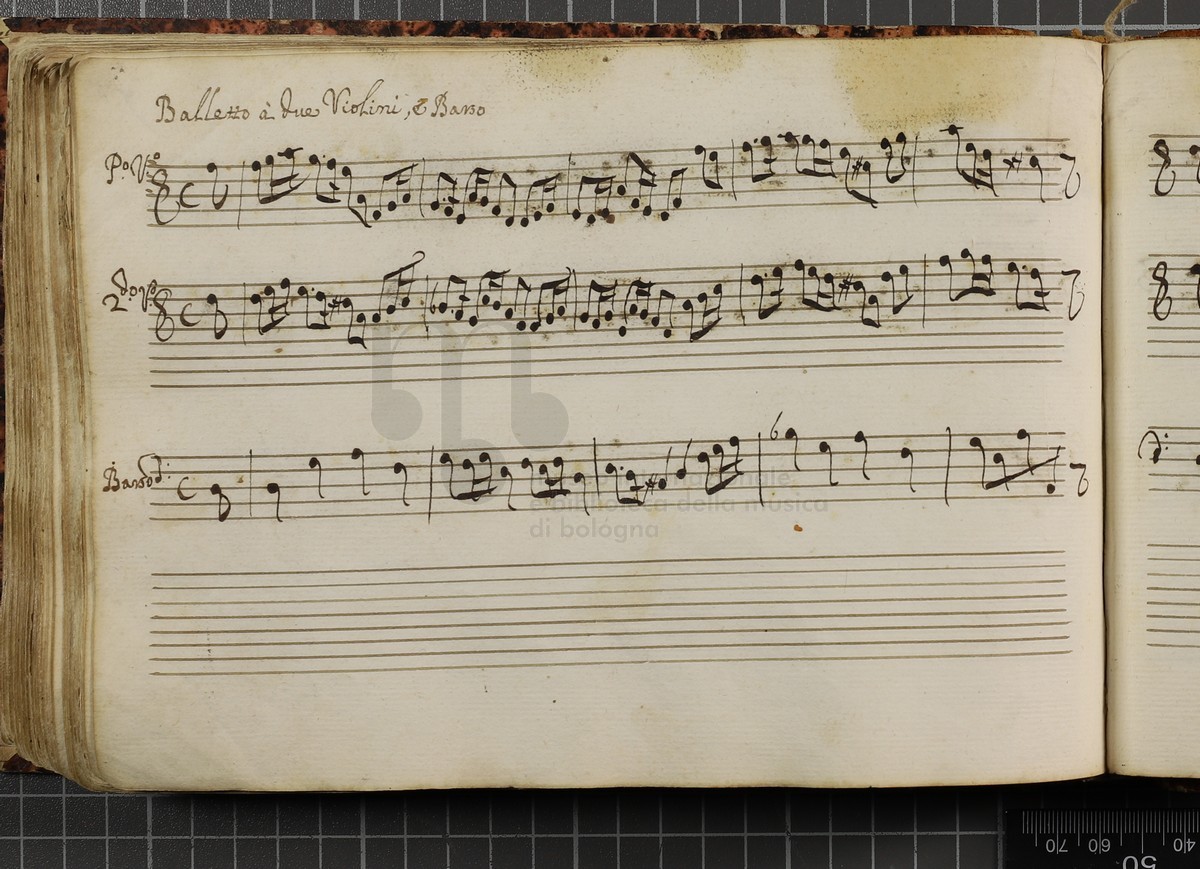 Balletto à due Violini, e Basso
P.º V.º
2.do V.º
Basso
6
e biblioteca della musica
di bologna
70 60 50 40